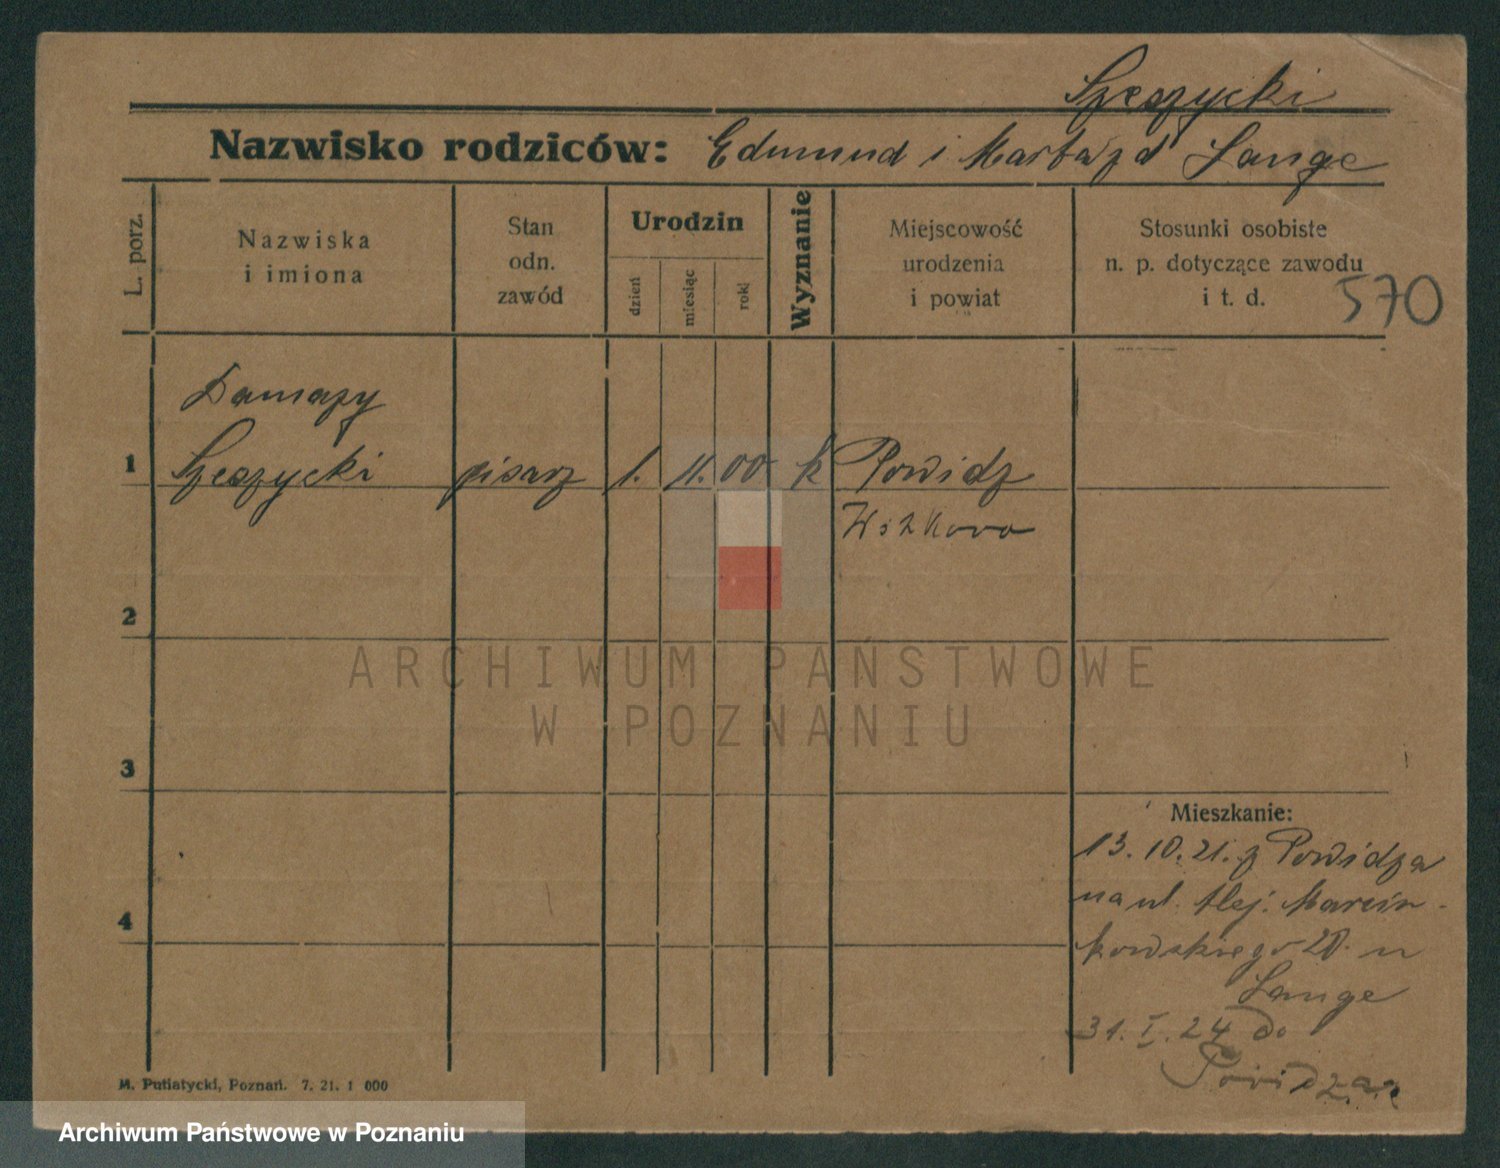 Szeszycki
Nazwisko rodziców: Edmund i Marta zd Lange
L. porz.
Nazwiska
i imiona
Stan
odn.
zawód
Urodzin
dzień
miesiąc
rok
Wyznanie
Miejscowość
urodzenia
i powiat
Stosunki osobiste
n. p. dotyczące zawodu
i t. d.
570
Damazy
1 Szeszycki pisarz 1. 11. 00 k Powidz
2
3
4
Mieszkanie:
13. 10. 21. z Powidza
na ul. Alej. Marcin-
kowskiego 20. u
Lange
31. I. 24 do
M. Putiatycki, Poznań. 7. 21. 1 000
ARCHIWUM PAŃSTWOWE
W POZNANIU
Archiwum Państwowe w Poznaniu